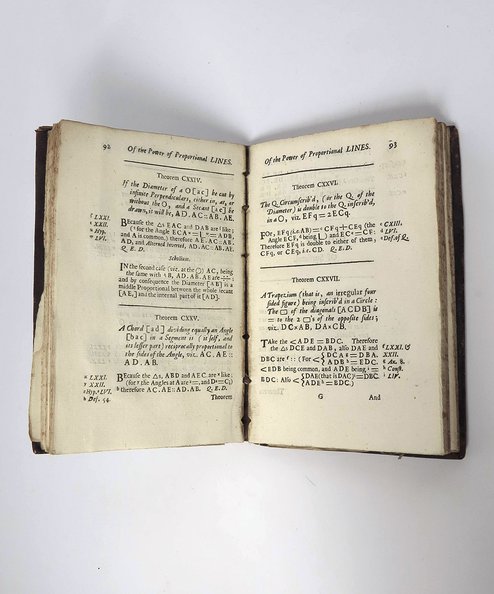 92
Of the Power of Proportional LINES.
Theorem CXXIV.
If the Diameter of a O[ac] be cut by
infinite Perpendiculars, either in, at, or
without the O, and a Secant [ae] be
drawn, it will be, AD. AC :: AB. AE.
LXXI.
XXII.
Hyp.
LVI.
BEcause the △s EAC and DAB are like;
(for the Angle ECA = = ADB,
and A is common,) therefore AE. AC :: AB.
AD, and Alterned Inversed, AD. AC :: AB. AE.
Q. E. D.
Scholium.
IN the second case (viz. at the O) AC, being
the same with AB, AD. AB. AE are
and by consequence the Diameter [AB] is a
middle Proportional between the whole secant
[AE,] and the internal part of it [AD].
Theorem CXXV.
A Chord [ad] dividing equally an Angle
[bac] in a Segment is (it self, and
its lesser part) reciprocally proportional to
the sides of the Angle, viz. AC. AE ::
AD. AB.
LXXI.
XXII.
Hyp. LVI.
Def. 54.
BEcause the △s, ABD and AEC are like:
(for the Angles at A are =, and D = C;)
therefore AC. AE :: AD. AB. Q. E. D.
Theorem
Of the Power of Proportional LINES.
93
Theorem CXXVI.
The Q. Circumscrib'd, (or the Q. of the
Diameter) is double to the Q. inscrib'd,
in a O, viz. EFq = 2ECq.
FOr, EFq (i.e. AB) = CFq + CEq (the
Angle ECF, being ) and EC = CF:
Therefore EFq is double to either of them,
CFq, or CEq, i.e. CD. Q. E. D.
CXIII.
LVI.
Def. of Q.
Theorem CXXVII.
A Trapezium (that is, an irregular four
sided figure) being inscrib'd in a Circle:
The □ of the diagonals [ACDB] is
= to the 2 □'s of the opposite sides;
viz. DC×AB, DA×CB.
TAke the < ADE = BDC. Therefore
the △s DCE and DAB, also DAE and
DBC are : (For < { DCA = DBA.
ADB = EDC.
< EDB being common, and ADE being =
BDC: Also < { DAE (that is DAC) = DBC.
ADE = BDC.)
LXXI. &
XXII.
Ax. 8.
Const.
LIV.
G
And